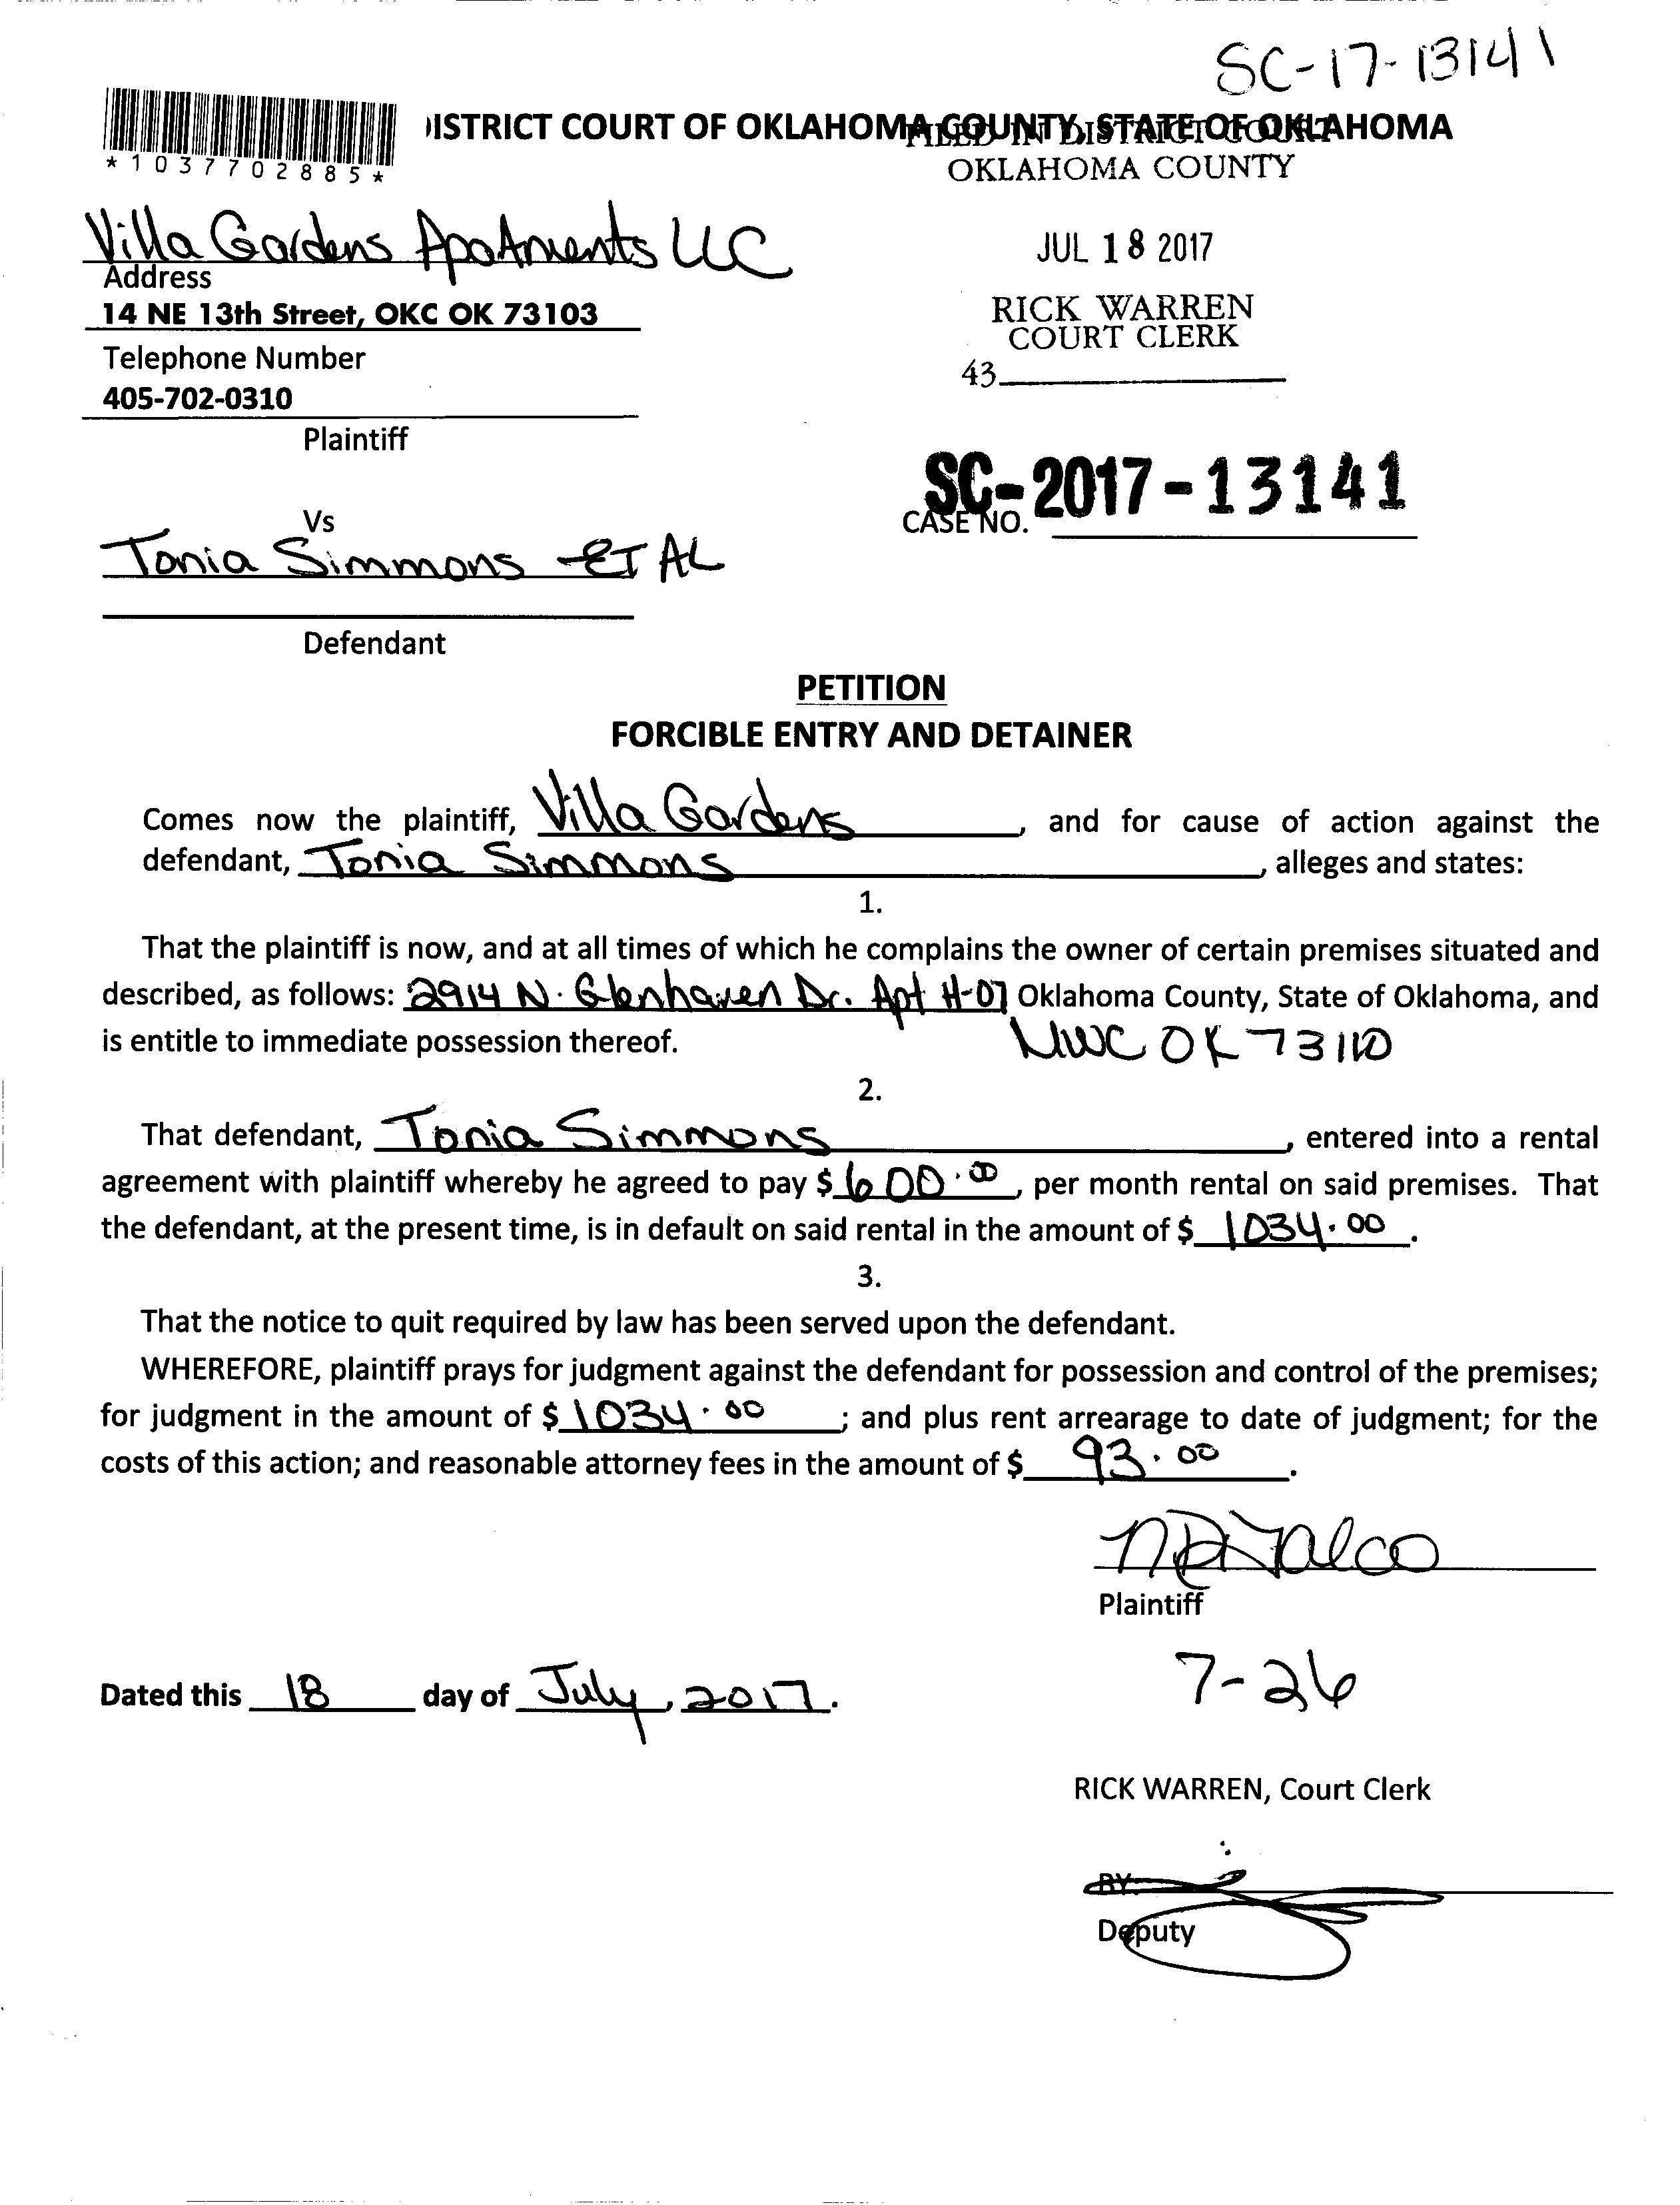 SC-17-13141
*1037702885*
DISTRICT COURT OF OKLAHOMA COUNTY, STATE OF OKLAHOMA
FILED IN DISTRICT COURT
OKLAHOMA COUNTY
Villa Gardens Apartments LLC
JUL 18 2017
Address
14 NE 13th Street, OKC OK 73103
RICK WARREN
COURT CLERK
Telephone Number
43
405-702-0310
Plaintiff
SC-2017-13141
CASE NO.
Vs
Tonia Simmons ET AL
Defendant
PETITION
FORCIBLE ENTRY AND DETAINER
Comes now the plaintiff, Villa Gardens, and for cause of action against the
defendant, Tonia Simmons, alleges and states:
1.
That the plaintiff is now, and at all times of which he complains the owner of certain premises situated and
described, as follows: 2914 N. Glenhaven Dr. Apt H-07 Oklahoma County, State of Oklahoma, and
is entitle to immediate possession thereof. MWC OK 73110
2.
That defendant, Tonia Simmons, entered into a rental
agreement with plaintiff whereby he agreed to pay $ 600.00, per month rental on said premises. That
the defendant, at the present time, is in default on said rental in the amount of $ 1034.00.
3.
That the notice to quit required by law has been served upon the defendant.
WHEREFORE, plaintiff prays for judgment against the defendant for possession and control of the premises;
for judgment in the amount of $ 1034.00; and plus rent arrearage to date of judgment; for the
costs of this action; and reasonable attorney fees in the amount of $ 93.00.
Plaintiff
7-26
Dated this 18 day of July, 2017.
RICK WARREN, Court Clerk
BY:
Deputy